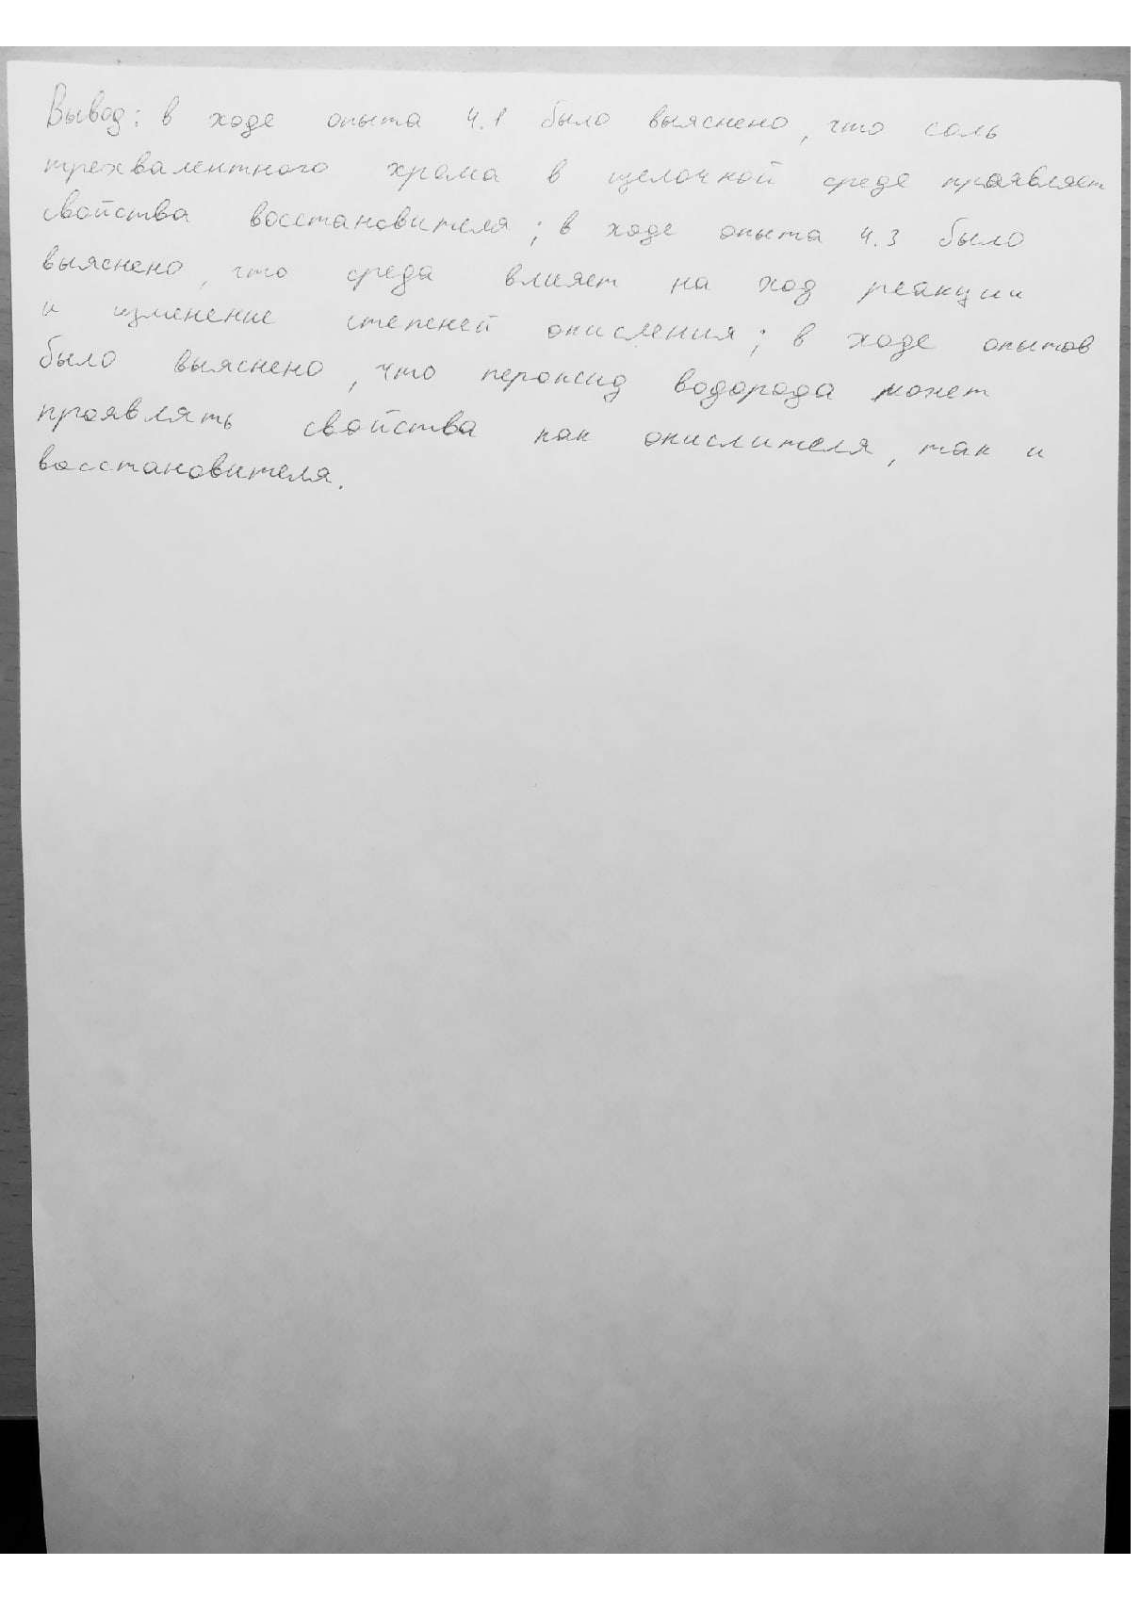 Вывод: в ходе опыта 4.1 было выяснено, что соль
трехвалентного хрома в щелочной среде проявляет
свойства восстановителя; в ходе опыта 4.3 было
выяснено, что среда влияет на ход реакции
и изменение степеней окисления; в ходе опытов
было выяснено, что пероксид водорода может
проявлять свойства как окислителя, так и
восстановителя.